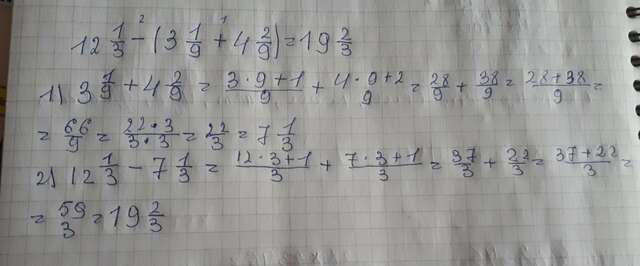 2 1
12 1/3 - (3 1/9 + 4 2/9) = 19 2/3
1) 3 1/9 + 4 2/9 = (3·9+1)/9 + (4·9+2)/9 = 28/9 + 38/9 = (28+38)/9 =
= 66/9 = (22·3)/(3·3) = 22/3 = 7 1/3
2) 12 1/3 - 7 1/3 = (12·3+1)/3 + (7·3+1)/3 = 37/3 + 22/3 = (37+22)/3 =
= 59/3 = 19 2/3